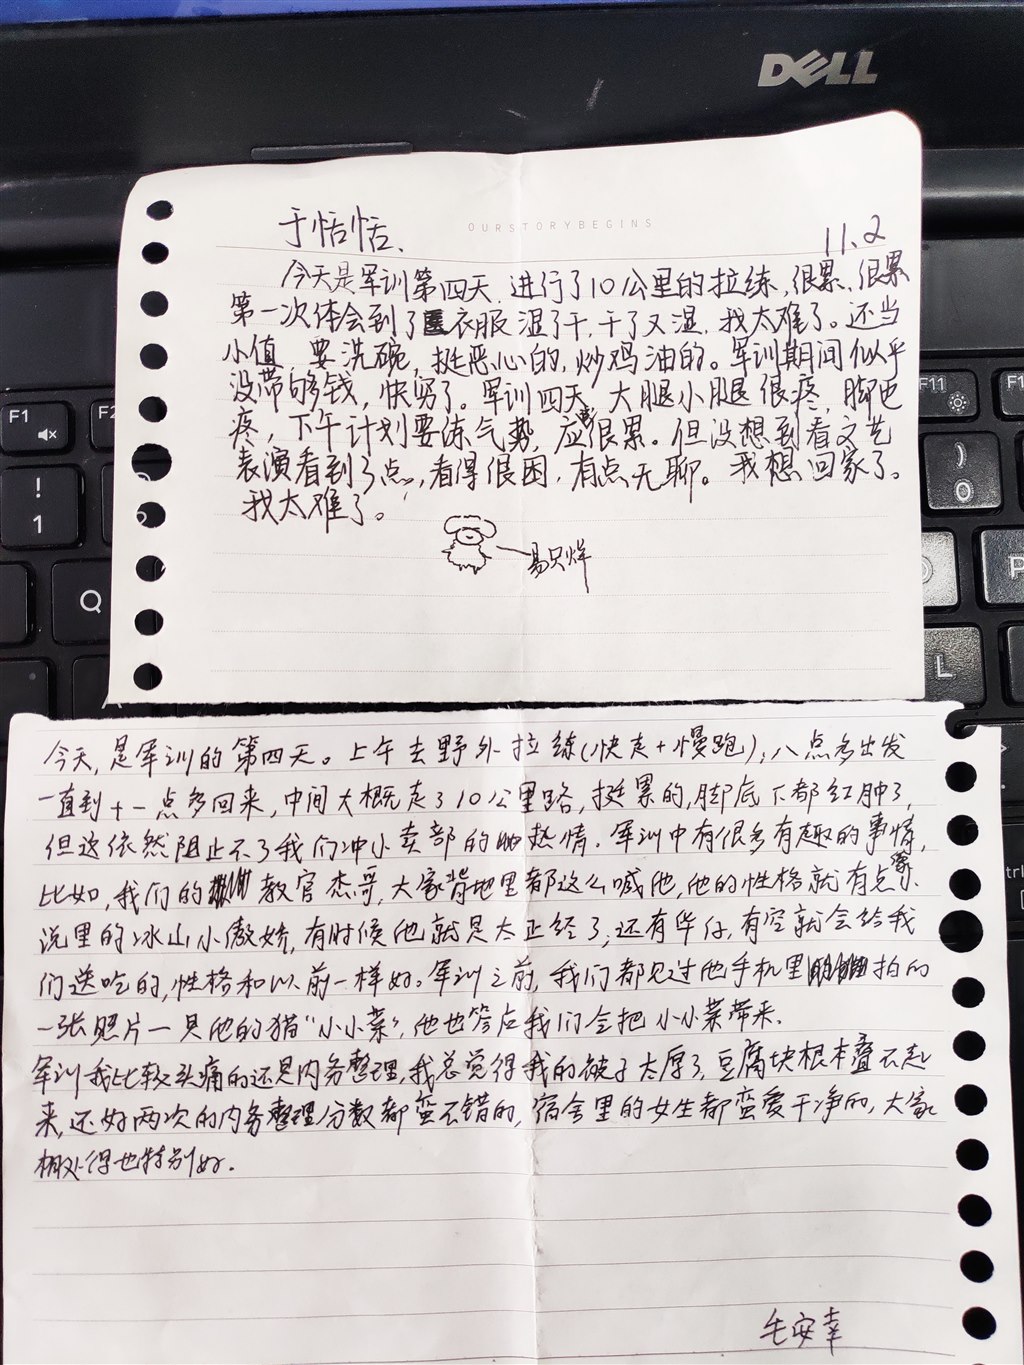 DELL
OURSTORYBEGINS
于恬恬、
11.2
今天是军训第四天,进行了10公里的拉练,很累,很累
第一次体会到了衣服湿了干,干了又湿,我太难了。还当
小值,要洗碗,挺恶心的,炒鸡油的。军训期间似乎
没带够钱,快穷了。军训四天,大腿小腿很疼,脚也
疼,下午计划要练气势,应该很累。但没想到看文艺
表演看到了点,看得很困,有点无聊。我想回家了。
我太难了。
易只烊
今天,是军训的第四天。上午去野外拉练(快走+慢跑),八点多出发
一直到十一点多回来,中间大概走了10公里路,挺累的,脚底下都红肿了,
但这依然阻止不了我们冲小卖部的热情。军训中有很多有趣的事情,
比如,我们的教官杰哥,大家背地里都这么喊他,他的性格就有点像小
说里的冰山小傲娇,有时候他就是太正经了,还有华仔,有空就会给我
们送吃的,性格和以前一样好。军训之前,我们都见过他手机里拍的
一张照片一只他的猫“小小菜”,他也答应我们会把小小菜带来.
军训我比较头痛的还是内务整理,我总觉得我的被子太厚了,豆腐块根本叠不起
来,还好两次的内务整理分数都蛮不错的,宿舍里的女生都蛮爱干净的,大家
相处得也特别好.
毛安幸
F1
F2
F11
!
1
)
0
Q
P
L